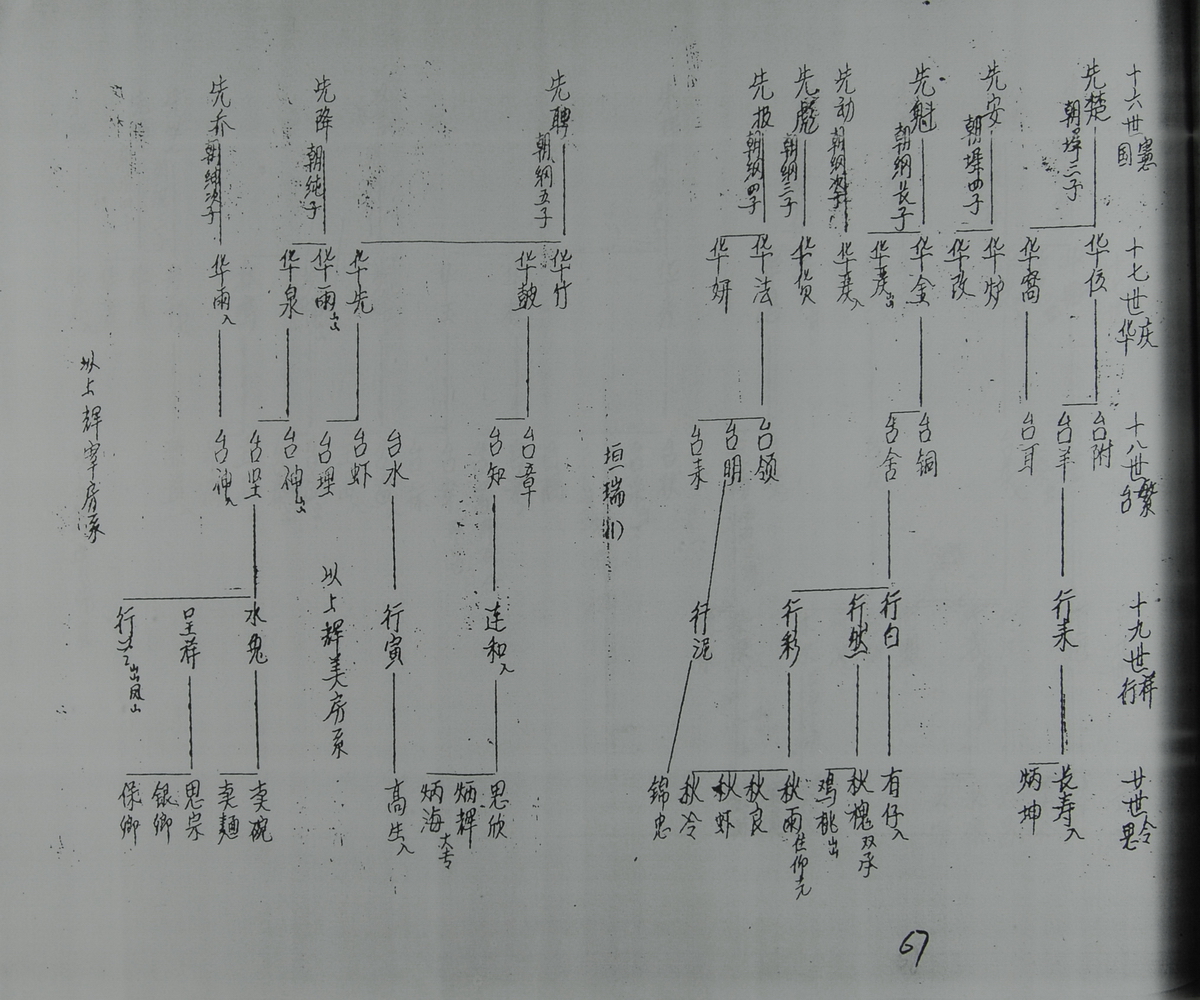 十六世 宪国
先楚 朝墀三子
先安 朝墀四子
先魁 朝纲长子
先劝 朝纲次子
先彪 朝纲三子
先拔 朝纲四子
先聘 朝纲五子
先降 朝纯子
先乔 朝绅次子
十七世 庆华
华伩
华窝
华炉
华改
华金
华彦出
华彦入
华货
华法
华妍
华竹
华鼓
华先
华雨出
华泉
华雨入
十八世 繁台
台附
台羊
台耳
台铜
台舍
台领
台明
台来
垣瑞(1)
台章
台知
台水
台虾
台理
台神出
台坚
台神入
以上辉宰房系
十九世 祥行
行来
行白
行然
行彩
行泥
连和入
行寅
以上辉美房系
水鬼
呈群
行 出凤山
廿世 令思
长寿入
炳坤
有仔入
秋槐 双承
鸡桃出
秋雨 住仰光
秋良
秋虾
秋冷
锦忠
思欣
炳辉 大专
炳海
高生入
卖碗
卖麺
思宗
银卿
保卿
67